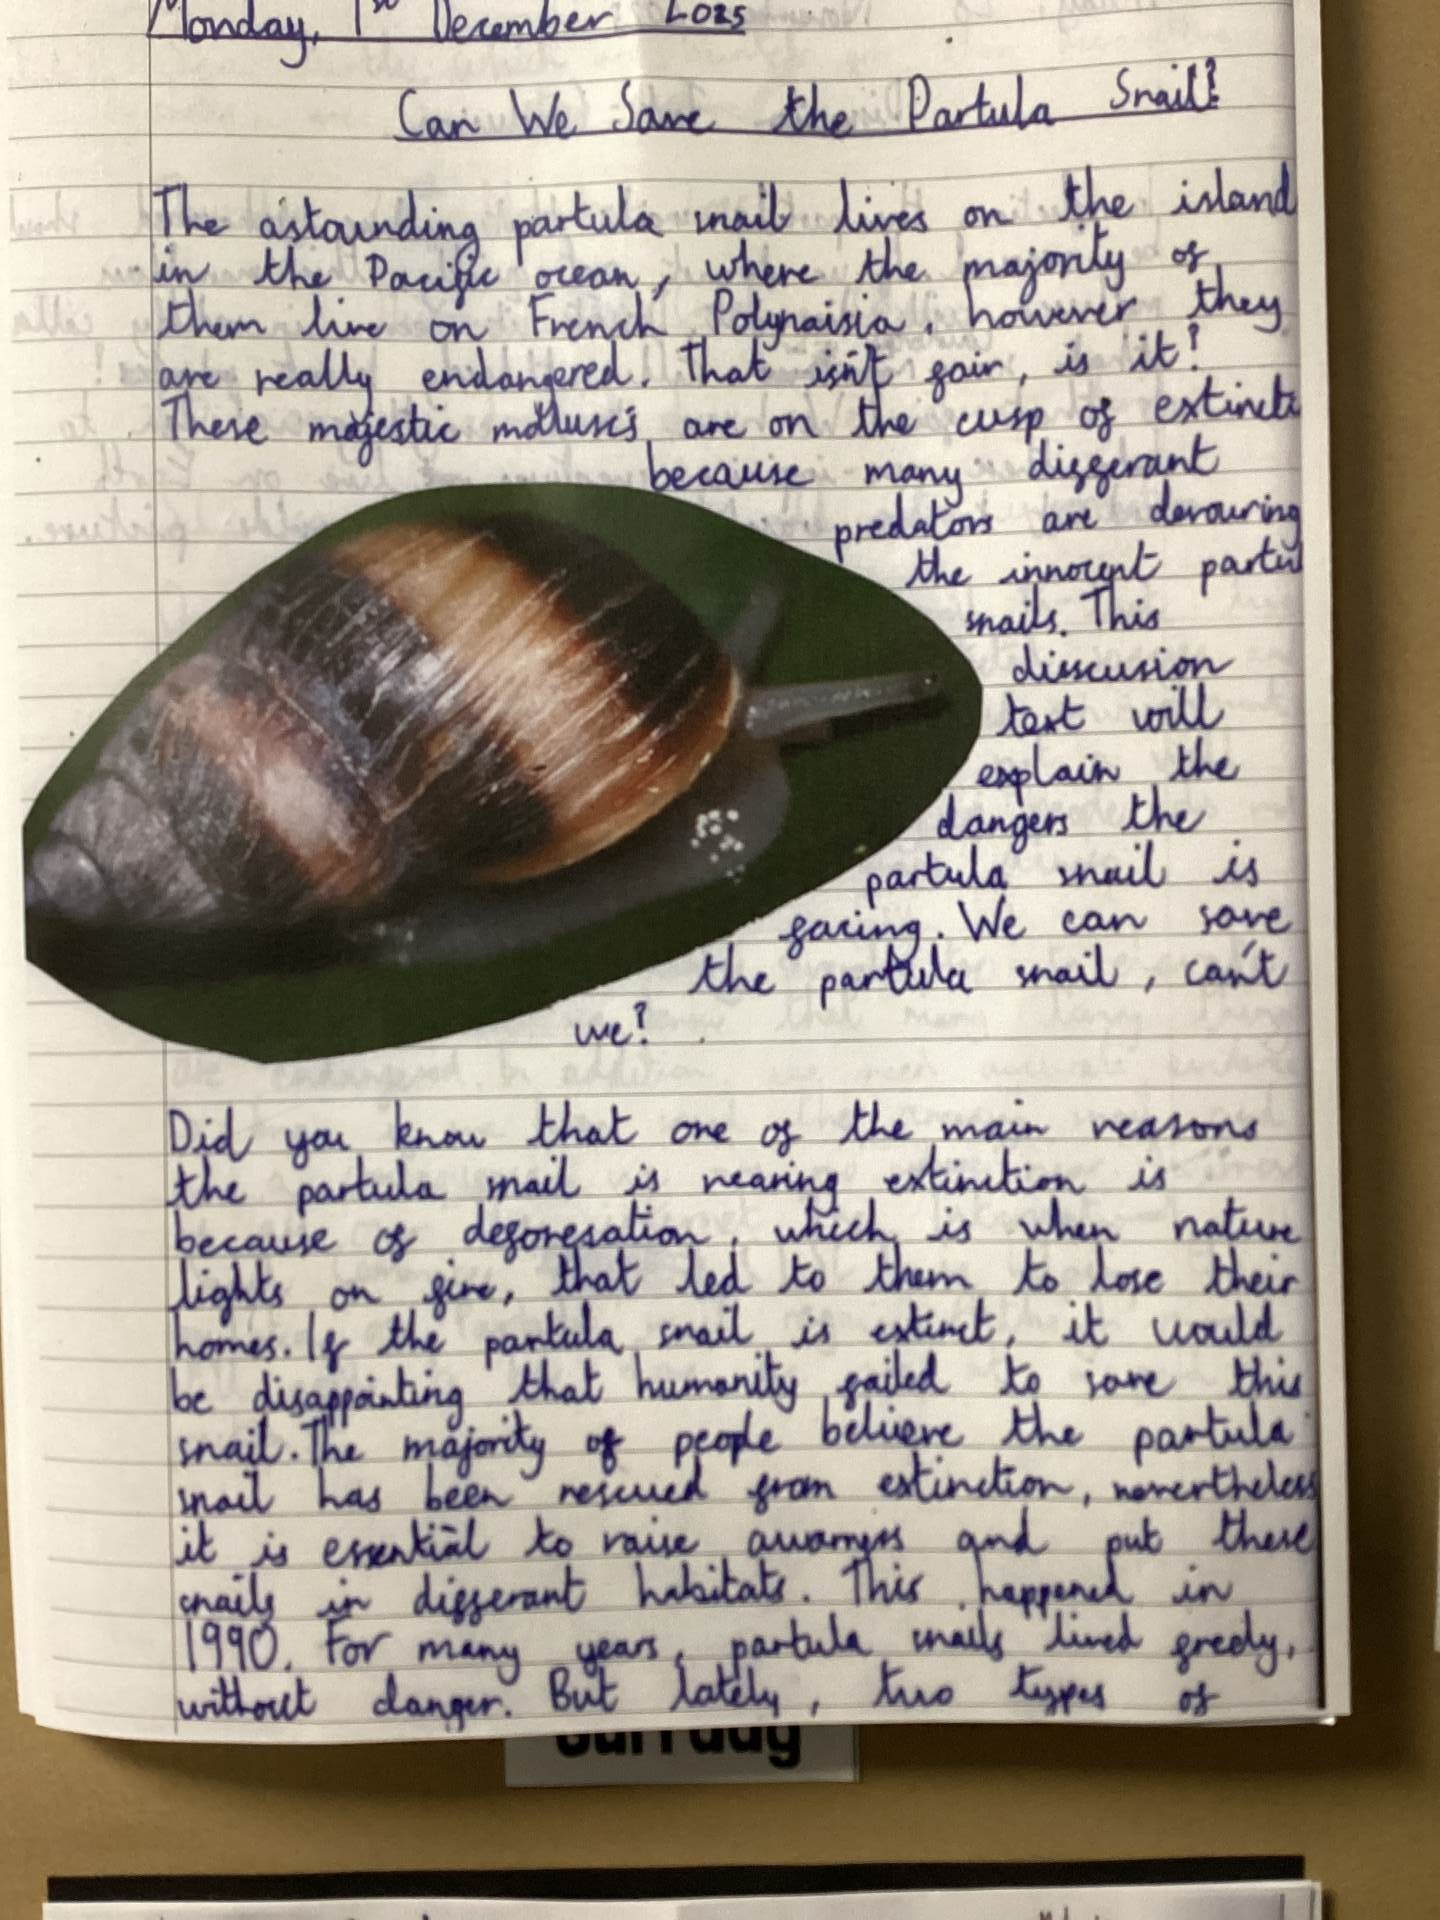 Monday, 1st December 2025
Can We Save the Partula Snail?
The astounding partula snail lives on the island
in the Pacific ocean, where the majority of
them live on French Polynaisia, however they
are really endangered. That isn't fair, is it?
These majestic molluscs are on the cusp of extincti
because many differant
predators are devouring
the innocent partul
snails. This
disscusion
text will
explain the
dangers the
partula snail is
facing. We can save
the partula snail, can't
we?
Did you know that one of the main reasons
the partula snail is nearing extinction is
because of deforesation, which is when nature
lights on fire, that led to them to lose their
homes. If the partula snail is extinct, it would
be disappointing that humanity failed to save this
snail. The majority of people believe the partula
snail has been rescued from extinction, nevertheless
it is essential to raise awarness and put these
snails in differant habitats. This happened in
1990. For many years, partula snails lived freely,
without danger. But lately, two types of